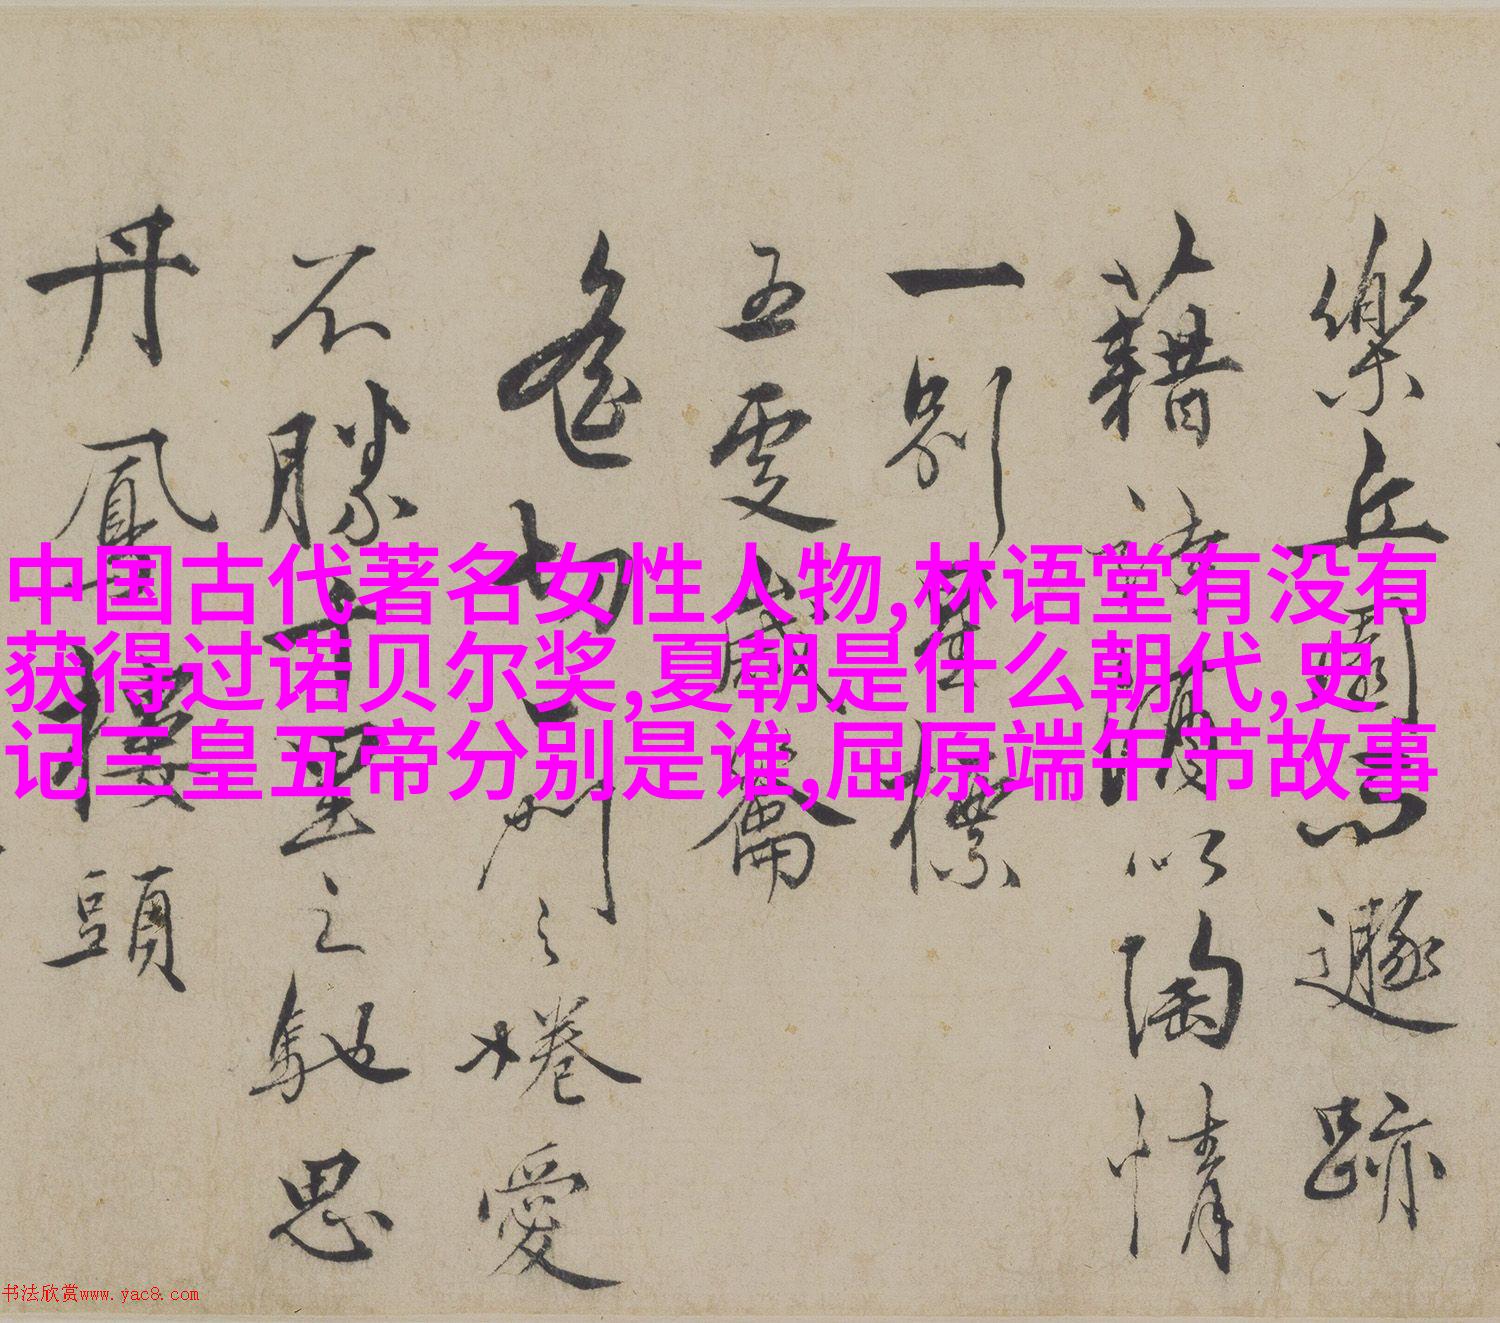 樂丘園遯跡
藉詩酒以陶情
一別
五更歲籥
切之惓愛
不勝千里之馳思
丹鳳樓頭
中国古代著名女性人物,林语堂有没有
获得过诺贝尔奖,夏朝是什么朝代,史
记三皇五帝分别是谁,屈原端午节故事
书法欣赏www.yac8.com